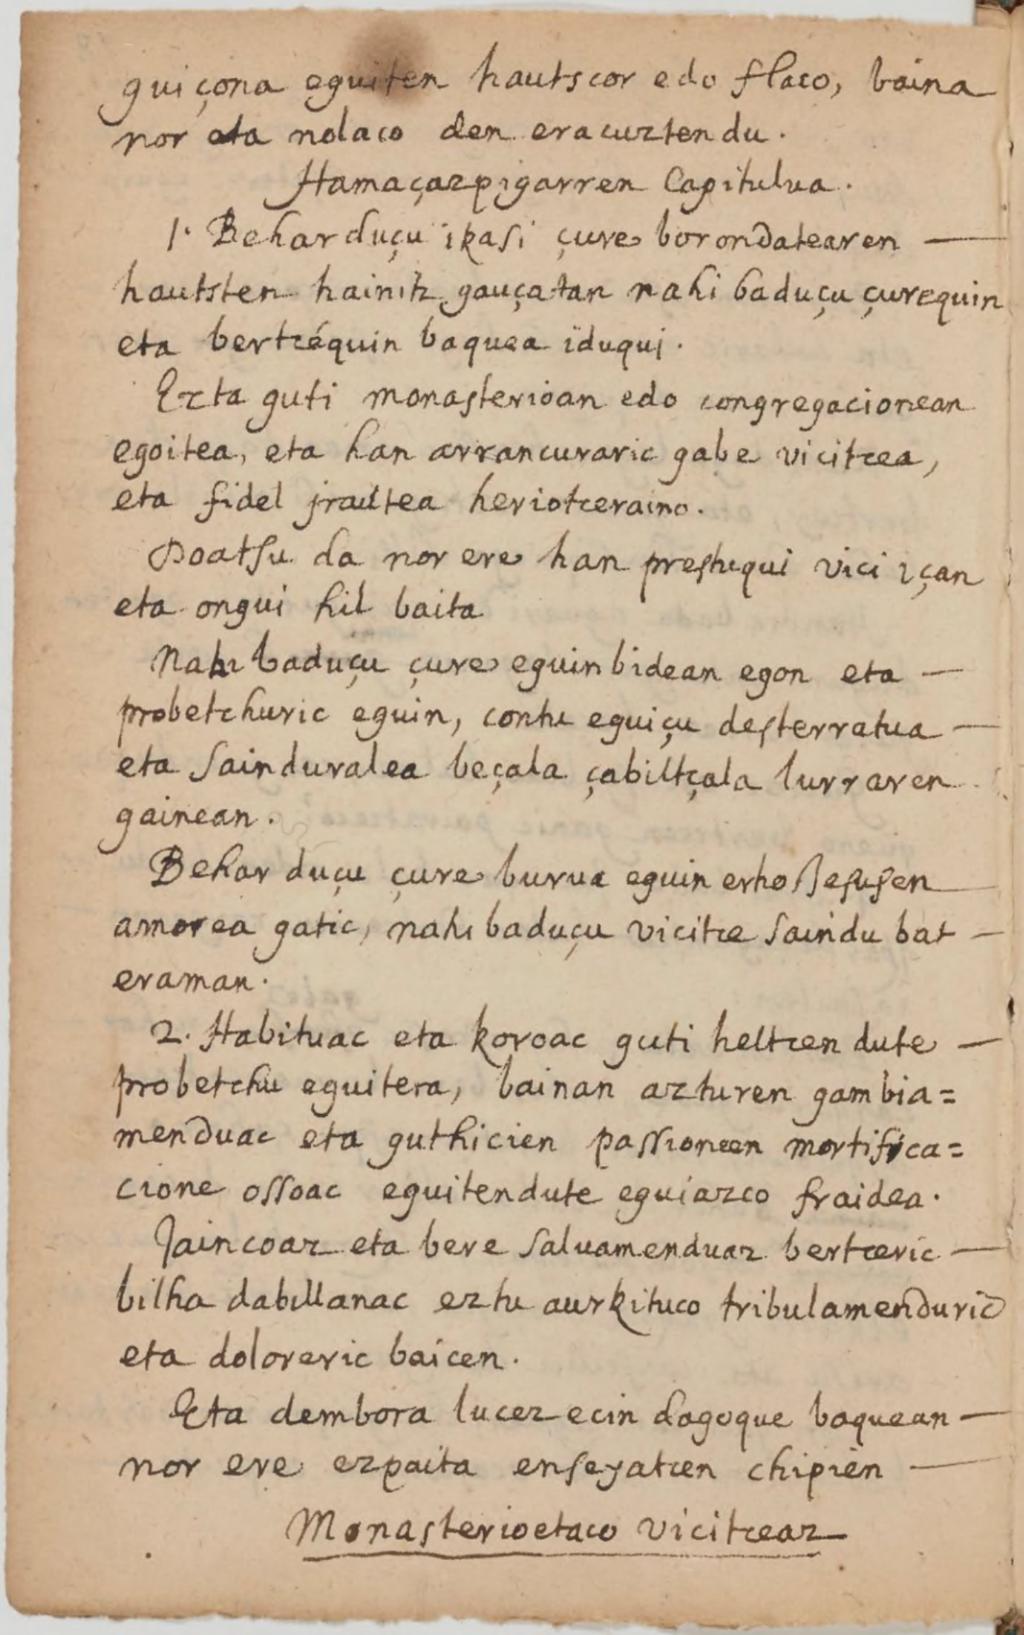 guiçona eguiten hautscor edo flaco, baina
nor eta nolaco den eracuztendu.
Hamaçazpigarren Capitulua.
1. Behar duçu ikasi çure borondatearen —
hautsten hainitz gauçatan nahi baduçu çurequin
eta bertcéquin baquea iduqui.
Ezta guti monasterioan edo congregacionean
egoitea, eta han arrancuraric gabe vicitcea,
eta fidel irautea heriotceraino.
Doatsu da nor ere han prestuqui vici içan
eta ongui hil baita
Nahi baduçu çure eguinbidean egon eta —
probetchuric eguin, contu eguiçu desterratua —
eta sainduralea beçala çabiltçala lurraren
gainean.
Behar duçu çure burua eguin erho Jesusen
amorea gatic, nahi baduçu vicitce saindu bat —
eraman.
2. Habituac eta koroac guti heltcen dute —
probetchu eguitera, bainan azturen gambia=
menduac eta guthicien passioneen mortifica=
cione ossoac eguitendute eguiazco fraidea.
Jaincoaz eta bere saluamenduaz bertceric —
bilha dabillanac eztu aurkituco tribulamenduric
eta doloreric baicen.
Eta dembora lucez ecin dagoque baquean —
nor ere ezpaita enseyatcen chipien —
Monasterioetaco vicitceaz